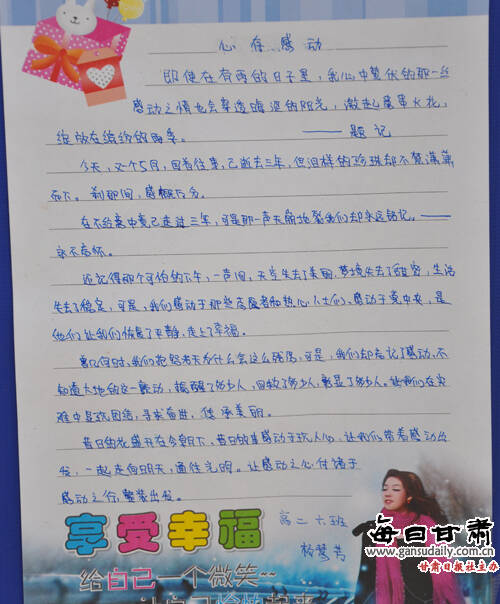 心存感动
即使在有雨的日子里,我心中蛰伏的那一丝
感动之情也会穿透晦涩的阳光,激起星星火花,
绽放在缤纷的雨季。 ——题记
今天,又个5月,回看往昔,已逝去三年,但泪样的珍珠却不禁潸潸
而下。刹那间,感慨万分。
在不经意中竟已走过三年,可是那一声天崩地裂我们却永远铭记。——
永不忘怀。
还记得那个可怕的下午,一声泪,天空失去了美丽,梦境失去了甜密,生活
失去了稳定,可是,我们感动于那些志愿者和热心人士们。感动于党中央,是
他们让我们恢复了平静,走上了幸福。
曾几何时,我们抱怨老天为什么会这么残忍,可是,我们却忘记了感动,不
知道大地的这一颤动,摇醒了多少人,回报了多少人,彰显了多少人。让我们在灾
难中团结,寻求奋进,传承美丽。
昔日的花盛开在今朝下,昔日故事感动于我人心,让我们带着感动出
发,一起走向明天,通往光明。让感动之心付诸于
感动之行,整装出发。
高二十班
享受幸福
给自己一个微笑~~
让自己愉快起来
每日甘肃
www.gansudaily.com.cn
甘肃日报社主办